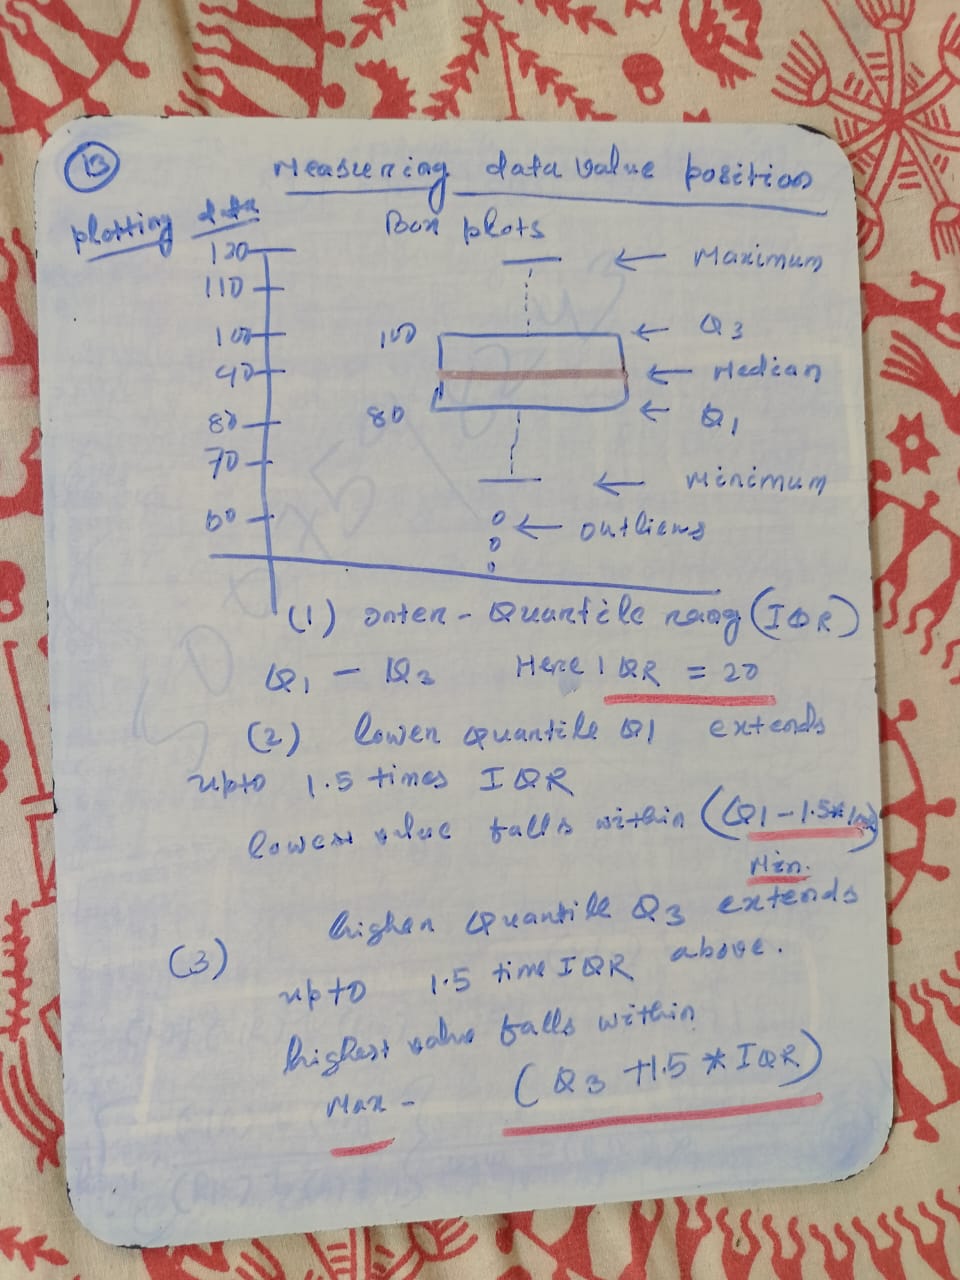 13
Measuring data value position
plotting data
Box plots
120
110
100
90
80
70
60
100
80
← Maximum
← Q3
← Median
← Q1
← Minimum
← Outliers
(1) Inter - Quantile rang (IQR)
Q1 - Q3 Here IQR = 20
(2) lower Quantile Q1 extends
upto 1.5 times IQR
lowest value falls within (Q1 - 1.5*IQR)
Min.
(3) higher Quantile Q3 extends
upto 1.5 time IQR above.
highest value falls within
Max - (Q3 + 1.5 * IQR)